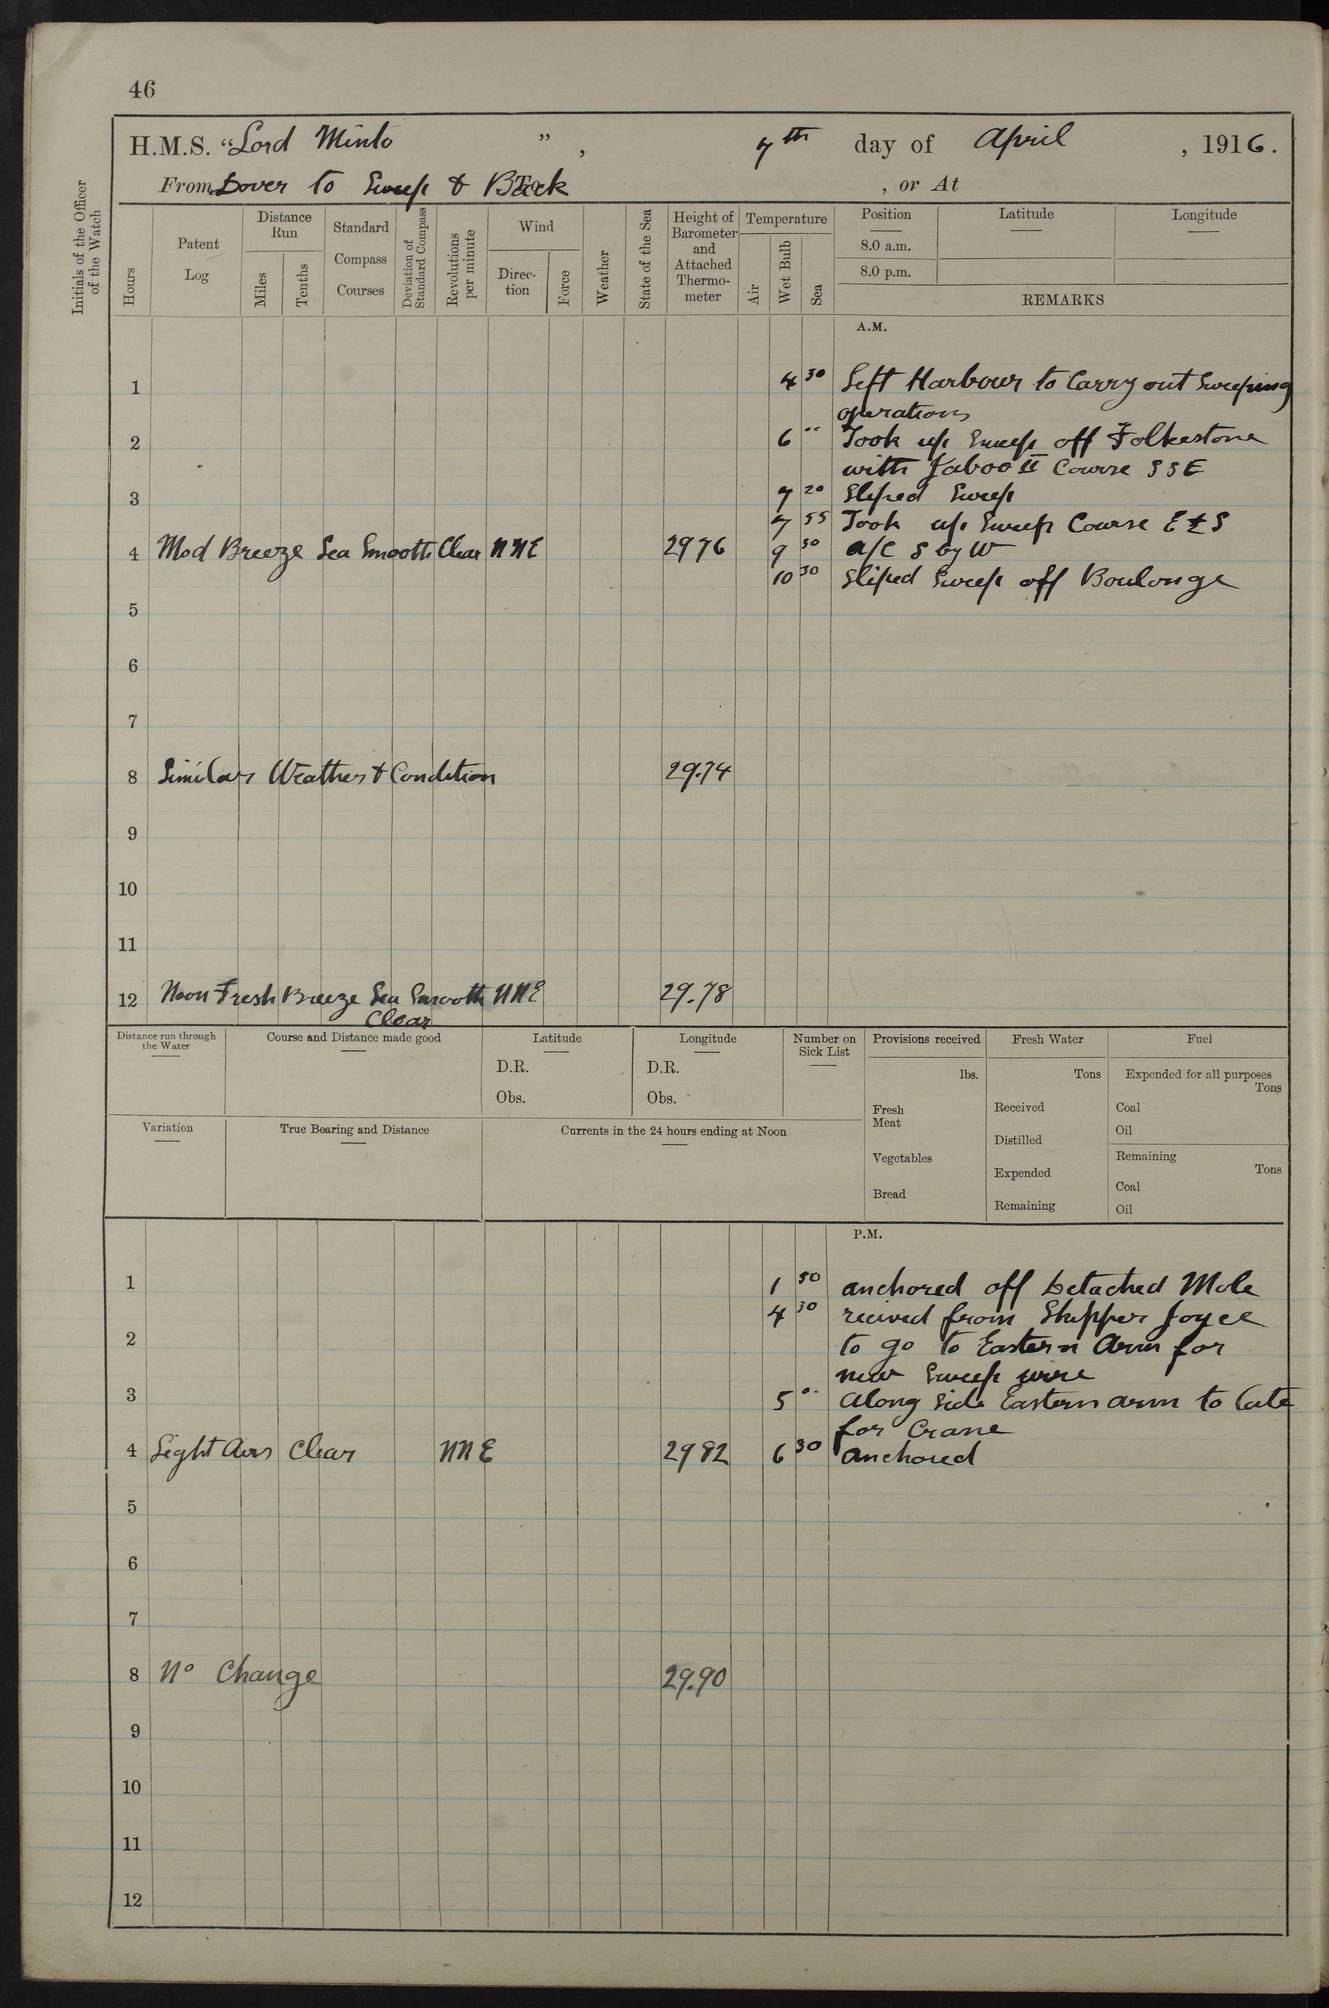 46
H.M.S. "Lord Minto ", 7th day of April, 1916.
From Dover to Sweep & Back To , or At
Initials of the Officer of the Watch
Hours
Patent Log
Distance Run
Miles
Tenths
Standard Compass Courses
Deviation of Standard Compass
Revolutions per minute
Wind
Direc-tion
Force
Weather
State of the Sea
Height of Barometer and Attached Thermo-meter
Temperature
Air
Wet Bulb
Sea
Position
Latitude
Longitude
8.0 a.m.
8.0 p.m.
REMARKS
A.M.
1 4 30 Left Harbour to Carry out Sweeping
operations
2 6 " Took up Sweep off Folkestone
with Jaboo II Course S S E
3 7 20 Sliped Sweep
7 55 Took up Sweep Course E & S
4 Mod Breeze Sea Smooth Clear NNE 2976 9 30 a/c S by W
10 30 Sliped Sweep off Boulonge
5
6
7
8 Similar Weather & Condition 29.74
9
10
11
12 Noon Fresh Breeze Sea Smooth NNE 29.78
Clear
Distance run through the Water
Course and Distance made good
Latitude
D.R.
Obs.
Longitude
D.R.
Obs.
Number on Sick List
Provisions received
lbs.
Fresh Meat
Vegetables
Bread
Fresh Water
Tons
Received
Distilled
Expended
Remaining
Fuel
Expended for all purposes
Tons
Coal
Oil
Remaining
Tons
Coal
Oil
Variation
True Bearing and Distance
Currents in the 24 hours ending at Noon
P.M.
1 1 50 anchored off Detached Mole
4 30 recived from Skipper Joyce
2 to go to Eastern Arm for
new Sweep wire
3 5 " Along Side Eastern arm to late
for Crane
4 Light Airs Clear NNE 2982 6 30 anchored
5
6
7
8 No Change 29.90
9
10
11
12